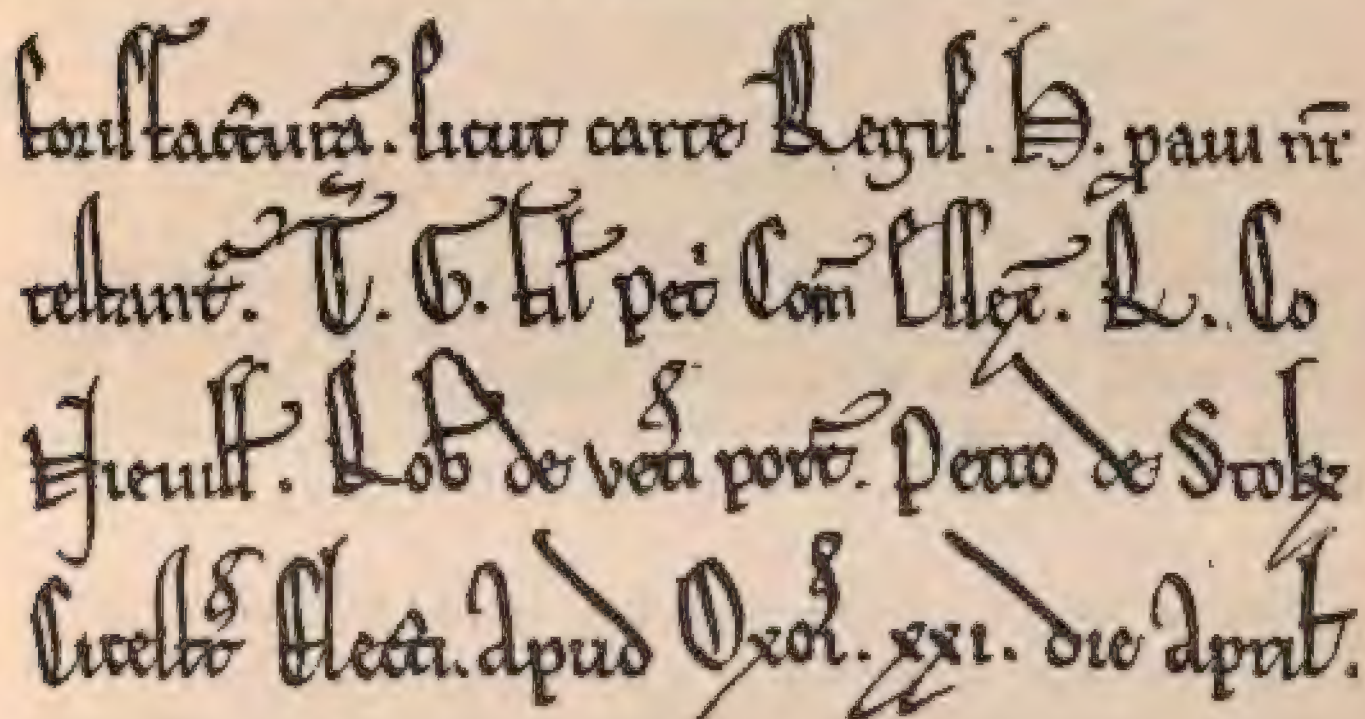 foriſfact̄urā. ſicut carte Regiſ. H. paui nr̄
teſtant̄. T̄. G. fil̄ pet̄ Com̄ Eſſex̄. R̄. Co
Nieuill̄. Rob̄ de vet̄i pont̄. Petro de Stok
Ciceſtr̄ Elect̄i. Apud Oxon̄. xxi. die April̄.